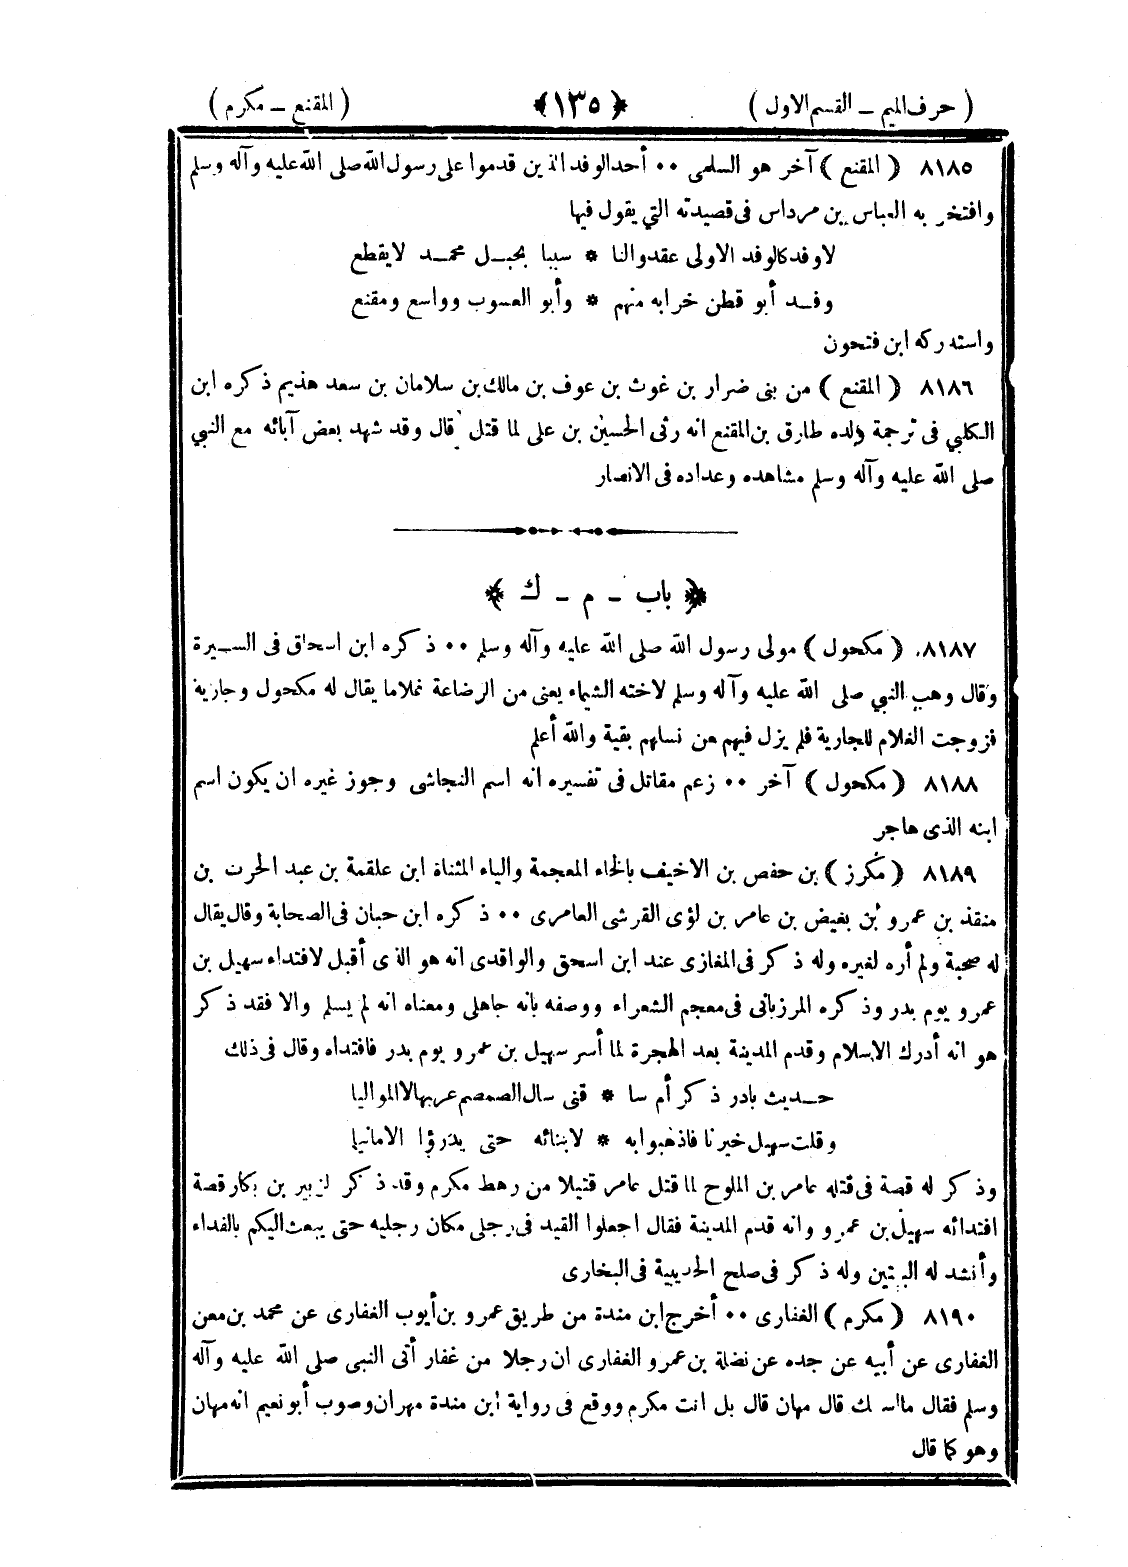 ( حرف الميم ــ القسم الاول ) ﴿ ١٣٥ ﴾ ( المقنع ــ مكرم )
٨١٨٥ ( المقنع ) آخر هو السلمى ٠٠ أحد الوفد الذين قدموا على رسول الله صلى الله عليه وآله وسلم
وافتخر به العباس بن مرداس فى قصيدته التي يقول فيها
لا وفد كالوفد الاولى عقدوا لنا * سببا بحبل محمد لا يقطع
وفد أبو قطن خرابه منهم * وأبو العسوب وواسع ومقنع
واستدركه ابن فتحون
٨١٨٦ ( المقنع ) من بنى ضرار بن غوث بن عوف بن مالك بن سلامان بن سعد هذيم ذكره ابن
الكلبي فى ترجمة ولده طارق بن المقنع انه رثى الحسين بن على لما قتل قال وقد شهد بعض آبائه مع النبي
صلى الله عليه وآله وسلم مشاهده وعداده فى الانصار
﴿ باب ــ م ــ ك ﴾
٨١٨٧ ( مكحول ) مولى رسول الله صلى الله عليه وآله وسلم ٠٠ ذكره ابن اسحاق فى السيرة
وقال وهب النبي صلى الله عليه وآله وسلم لاخته الشيماء يعنى من الرضاعة غلاما يقال له مكحول وجارية
فزوجت الغلام للجارية فلم يزل فيهم من نسلهم بقية والله أعلم
٨١٨٨ ( مكحول ) آخر ٠٠ زعم مقاتل فى تفسيره انه اسم النجاشى وجوز غيره ان يكون اسم
ابنه الذى هاجر
٨١٨٩ ( مكرز ) بن حفص بن الاخيف بالخاء المعجمة والياء المثناة ابن علقمة بن عبد الحرث بن
منقذ بن عمرو بن بغيض بن عامر بن لؤى القرشى العامرى ٠٠ ذكره ابن حبان فى الصحابة وقال يقال
له صحبة ولم أره لغيره وله ذكر فى المغازى عند ابن اسحق والواقدى انه هو الذى أقبل لافتداء سهيل بن
عمرو يوم بدر وذكره المرزبانى فى معجم الشعراء ووصفه بانه جاهلى ومعناه انه لم يسلم والا فقد ذكر
هو انه أدرك الاسلام وقدم المدينة بعد الهجرة لما أسر سهيل بن عمرو يوم بدر فافتداه وقال فى ذلك
حديث بادر ذكر أم سا * قنى سال الصمصم عربها لا المواليا
وقلت سهيل خيرنا فاذهبوا به * لابنائه حتى يدرؤا الامانيا
وذكر له قصة فى قتله عامر بن الملوح لما قتل عامر قتيلا من رهط مكرم وقد ذكر لزبير بن بكار قصة
افتدائه سهيل بن عمرو وانه قدم المدينة فقال اجعلوا القيد فى رجلى مكان رجليه حتى يبعث اليكم بالفداء
وأنشد له البيتين وله ذكر فى صلح الحديبية فى البخارى
٨١٩٠ ( مكرم ) الغفارى ٠٠ أخرج ابن مندة من طريق عمرو بن أيوب الغفارى عن محمد بن معن
الغفارى عن أبيه عن جده عن نضلة بن عمرو الغفارى ان رجلا من غفار أتى النبى صلى الله عليه وآله
وسلم فقال ما اسمك قال مهان قال بل انت مكرم ووقع فى رواية ابن مندة مهران وصوب أبو نعيم انه مهان
وهو كما قال